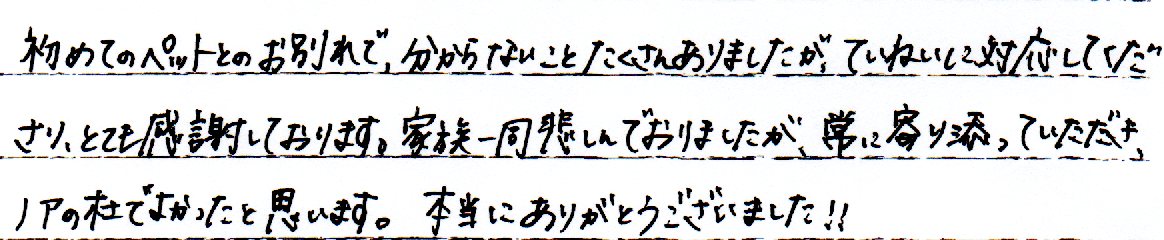 初めてのペットとのお別れで、分からないことたくさんありましたが、ていねいに対応してくだ
さり、とても感謝しております。家族一同悲しんでおりましたが、常に寄り添っていただき、
ノアの杜でよかったと思います。本当にありがとうございました!!